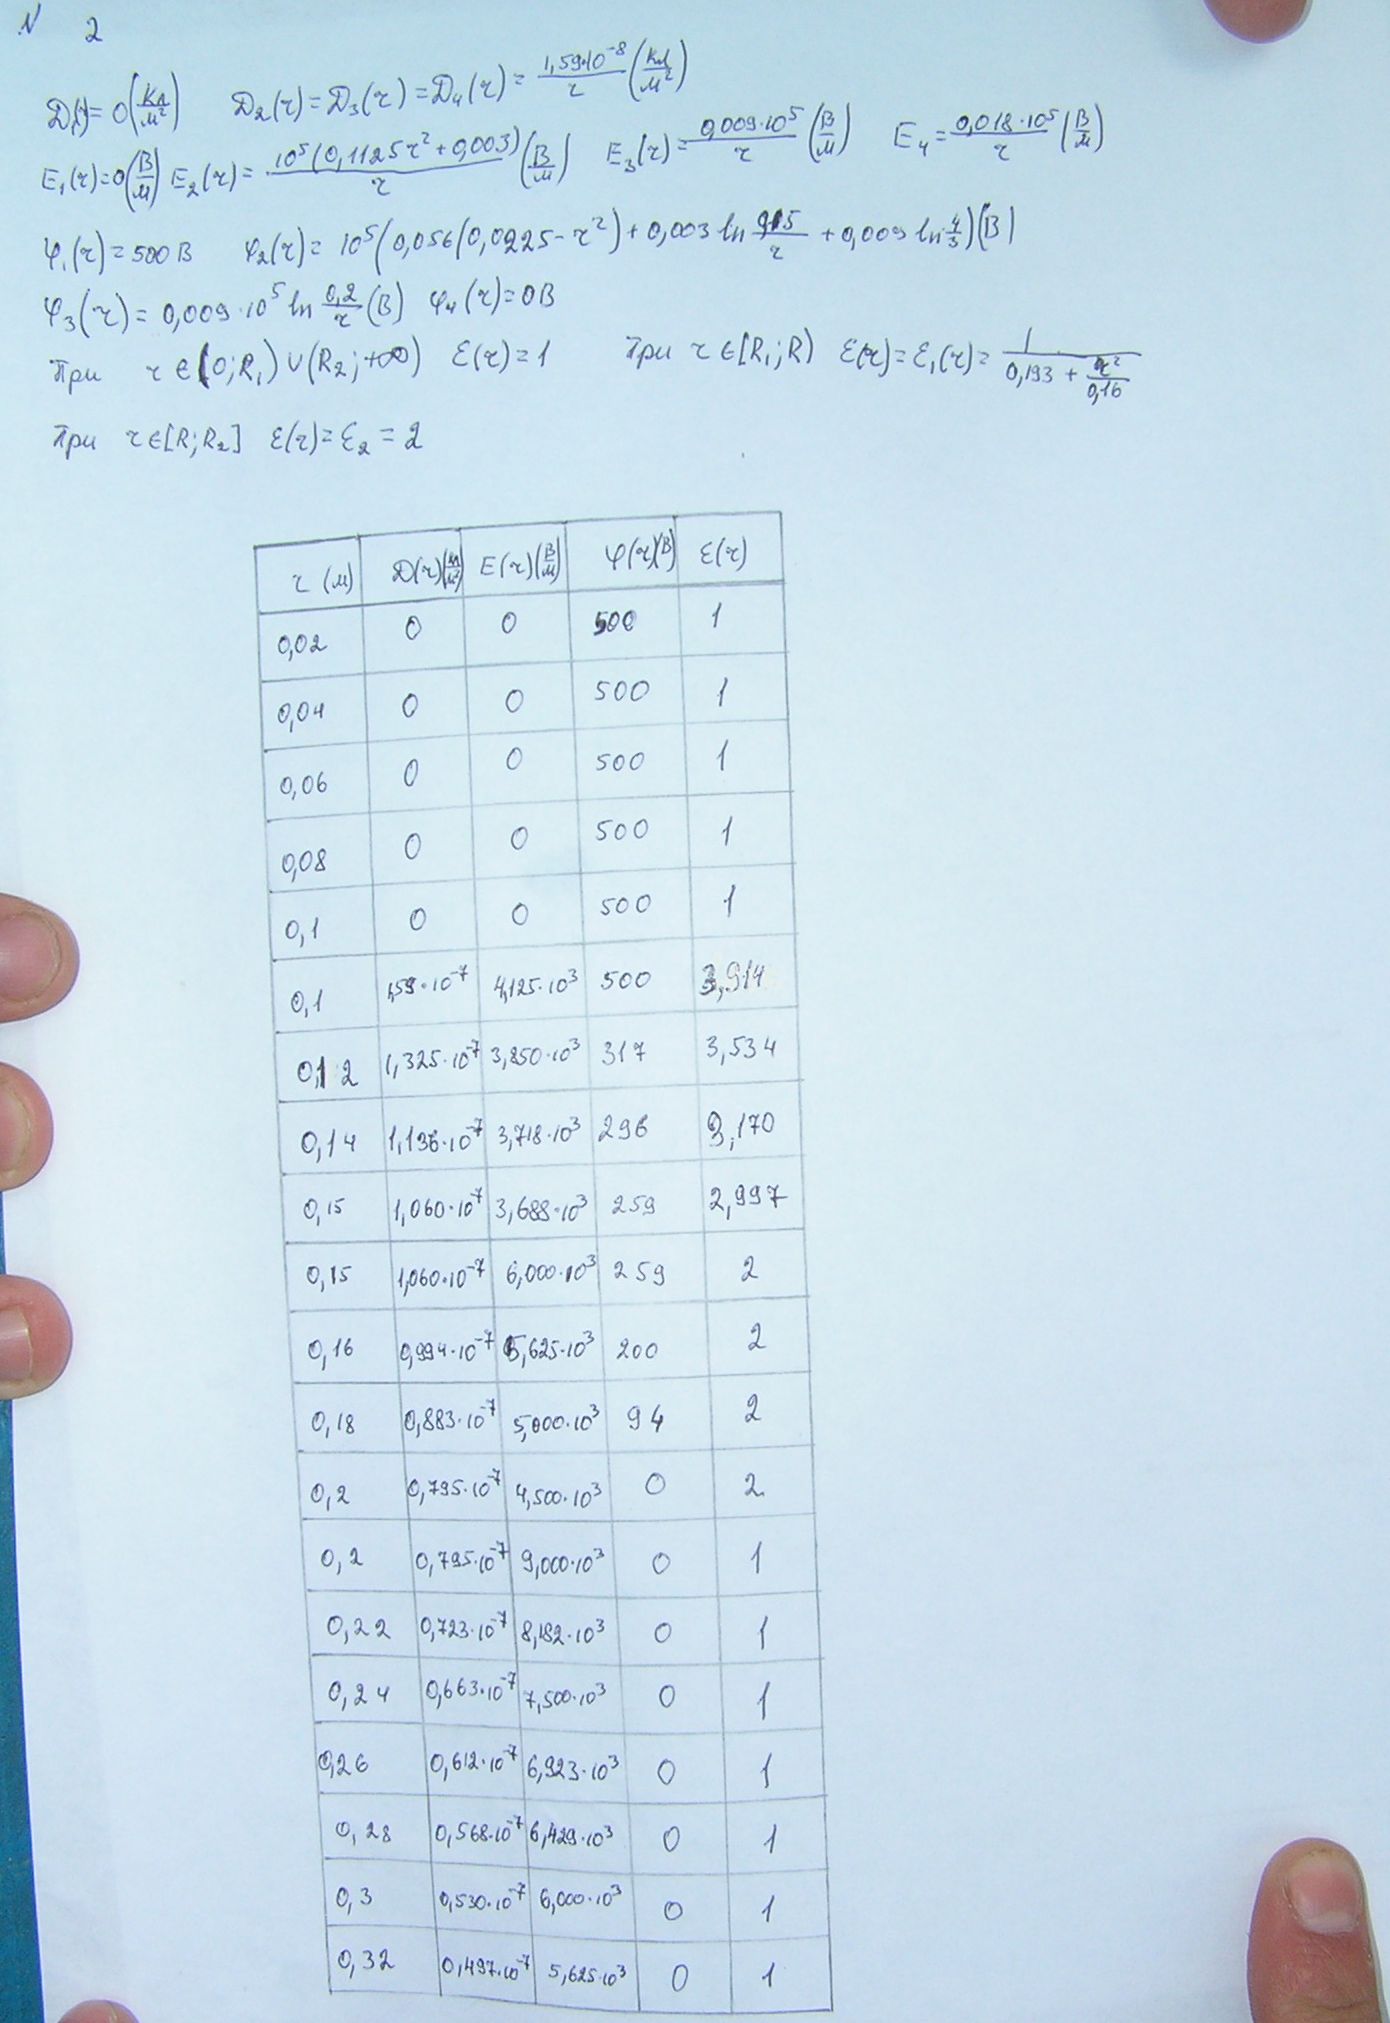 № 2
D₁(r)=0(Кл/м²) D₂(r)=D₃(r)=D₄(r)=1,59·10⁻⁸/r (Кл/м²)
E₁(r)=0(В/м) E₂(r)=10⁵(0,1125r²+0,003)/r (В/м) E₃(r)=0,009·10⁵/r (В/м) E₄=0,018·10⁵/r (В/м)
φ₁(r)=500 В φ₂(r)=10⁵(0,056(0,0225-r²)+0,003 ln 0,15/r +0,009 ln 4/3)(В)
φ₃(r)=0,009·10⁵ ln 0,2/r (В) φ₄(r)=0В
При r∈(0;R₁)∪(R₂;+∞) ℰ(r)=1 При r∈[R₁;R) ℰ(r)=ℰ₁(r)=1/(0,193+r²/0,16)
При r∈[R;R₂] ℰ(r)=ℰ₂=2
r (м) D(r)(Кл/м²) E(r)(В/м) φ(r)(В) ℰ(r)
0,02 0 0 500 1
0,04 0 0 500 1
0,06 0 0 500 1
0,08 0 0 500 1
0,1 0 0 500 1
0,1 1,59·10⁻⁷ 4,125·10³ 500 3,914
0,12 1,325·10⁻⁷ 3,850·10³ 317 3,534
0,14 1,136·10⁻⁷ 3,718·10³ 296 3,170
0,15 1,060·10⁻⁷ 3,688·10³ 259 2,997
0,15 1,060·10⁻⁷ 6,000·10³ 259 2
0,16 0,994·10⁻⁷ 5,625·10³ 200 2
0,18 0,883·10⁻⁷ 5,000·10³ 94 2
0,2 0,795·10⁻⁷ 4,500·10³ 0 2
0,2 0,795·10⁻⁷ 9,000·10³ 0 1
0,22 0,723·10⁻⁷ 8,182·10³ 0 1
0,24 0,663·10⁻⁷ 7,500·10³ 0 1
0,26 0,612·10⁻⁷ 6,923·10³ 0 1
0,28 0,568·10⁻⁷ 6,429·10³ 0 1
0,3 0,530·10⁻⁷ 6,000·10³ 0 1
0,32 0,497·10⁻⁷ 5,625·10³ 0 1